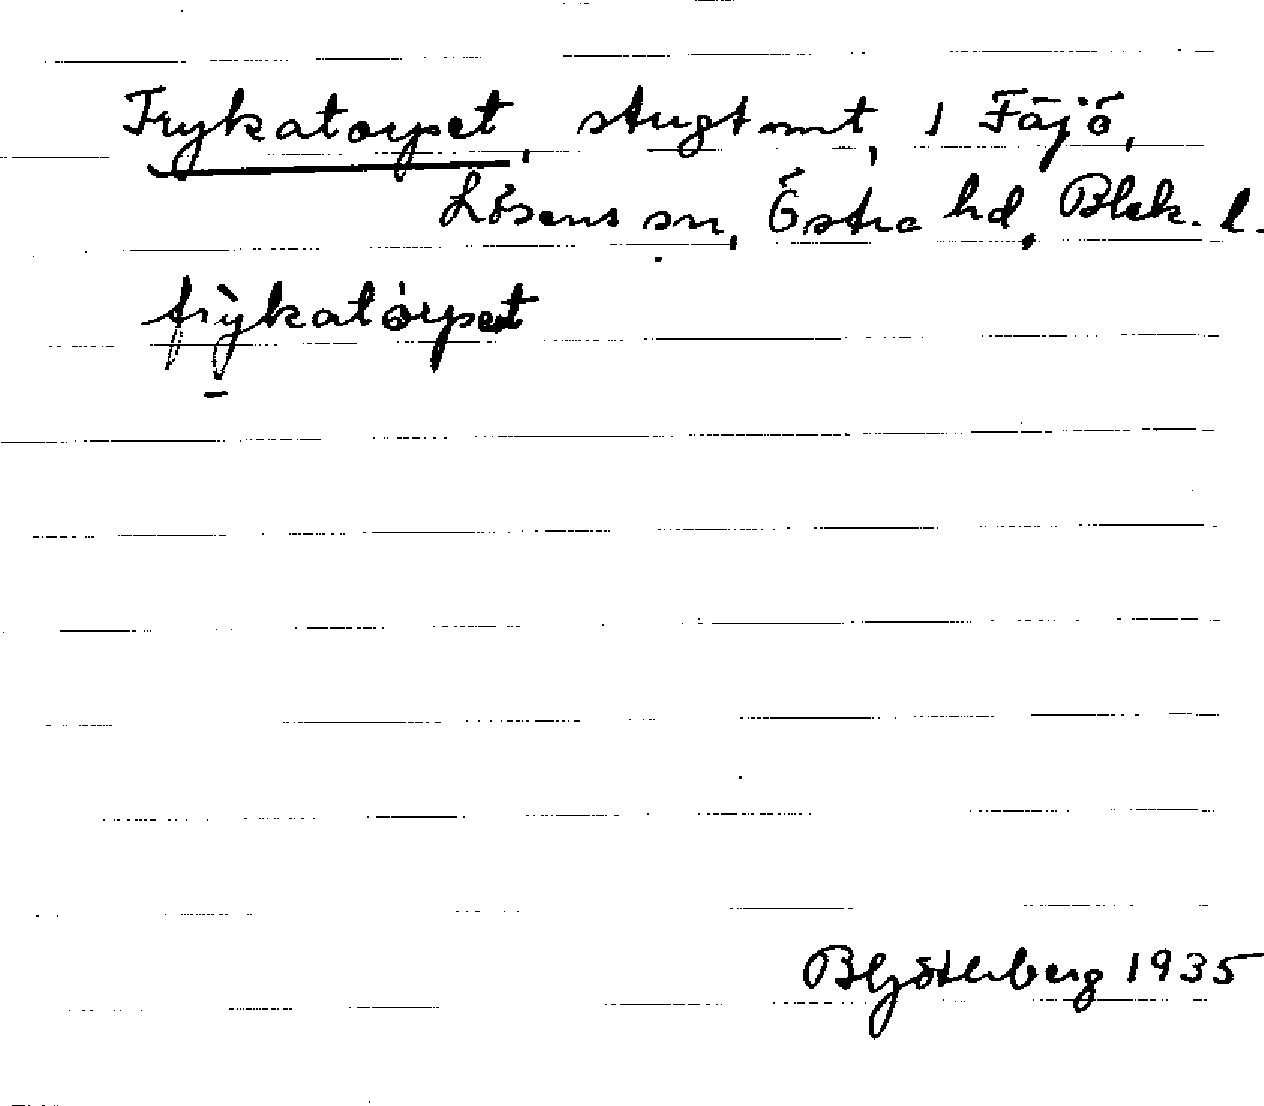 Frykatorpet, stugtmt, i Fäjö,
Lösens sn, Östra hd, Blek. l.
frỳkatórpet
1935